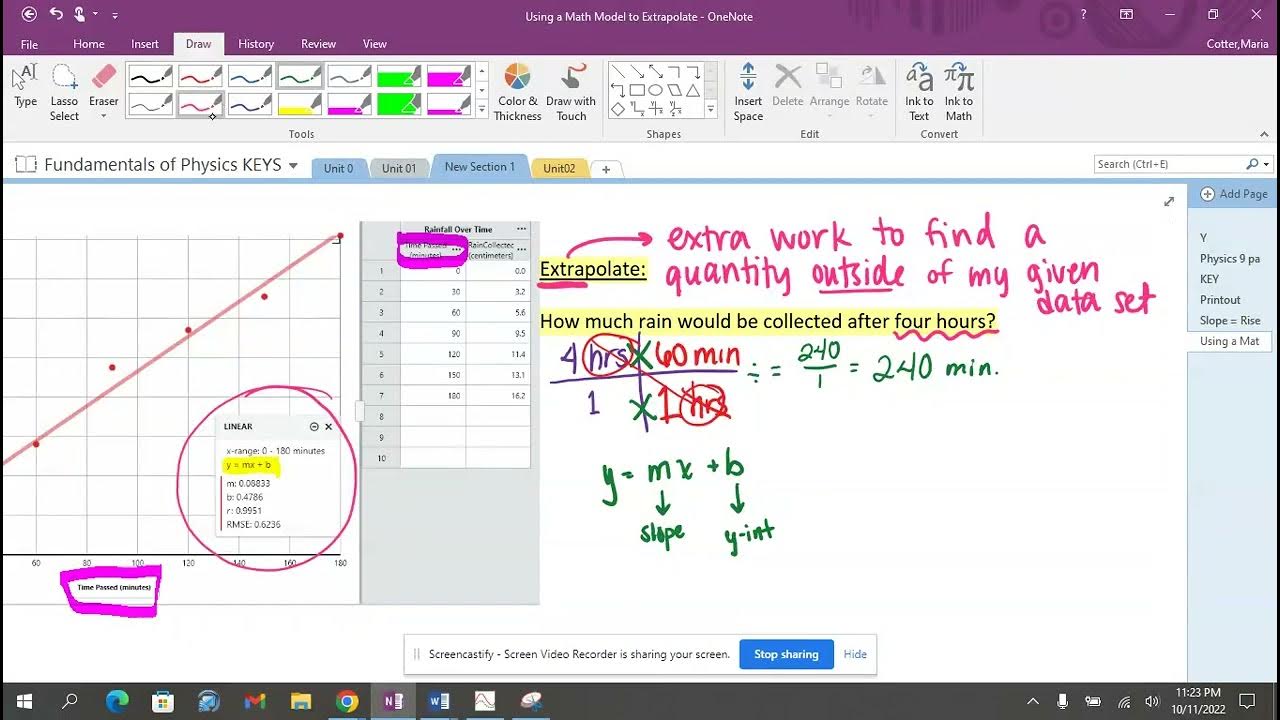 Using a Math Model to Extrapolate - OneNote
?
File Home Insert Draw History Review View
Cotter,Maria
Type
Lasso Select
Eraser
Color & Thickness
Draw with Touch
Insert Space
Delete
Arrange
Rotate
Ink to Text
Ink to Math
Tools
Shapes
Edit
Convert
Fundamentals of Physics KEYS
Unit 0
Unit 01
New Section 1
Unit02
+
Search (Ctrl+E)
Add Page
Y
Physics 9 pa
KEY
Printout
Slope = Rise
Using a Mat
Rainfall Over Time
Time Passed (minutes) RainCollectec (centimeters)
1 0 0.0
2 30 3.2
3 60 5.6
4 90 9.5
5 120 11.4
6 150 13.1
7 180 16.2
8
9
10
LINEAR
x-range: 0 - 180 minutes
y = mx + b
m: 0.08833
b: 0.4786
r: 0.9951
RMSE: 0.6236
60 80 100 120 140 160 180
Time Passed (minutes)
extra work to find a
Extrapolate: quantity outside of my given
data set
How much rain would be collected after four hours?
4 hrs X 60 min ÷ = 240/1 = 240 min.
1 X 1 hrs
y = mx + b
slope y-int
Screencastify - Screen Video Recorder is sharing your screen. Stop sharing Hide
11:23 PM
10/11/2022